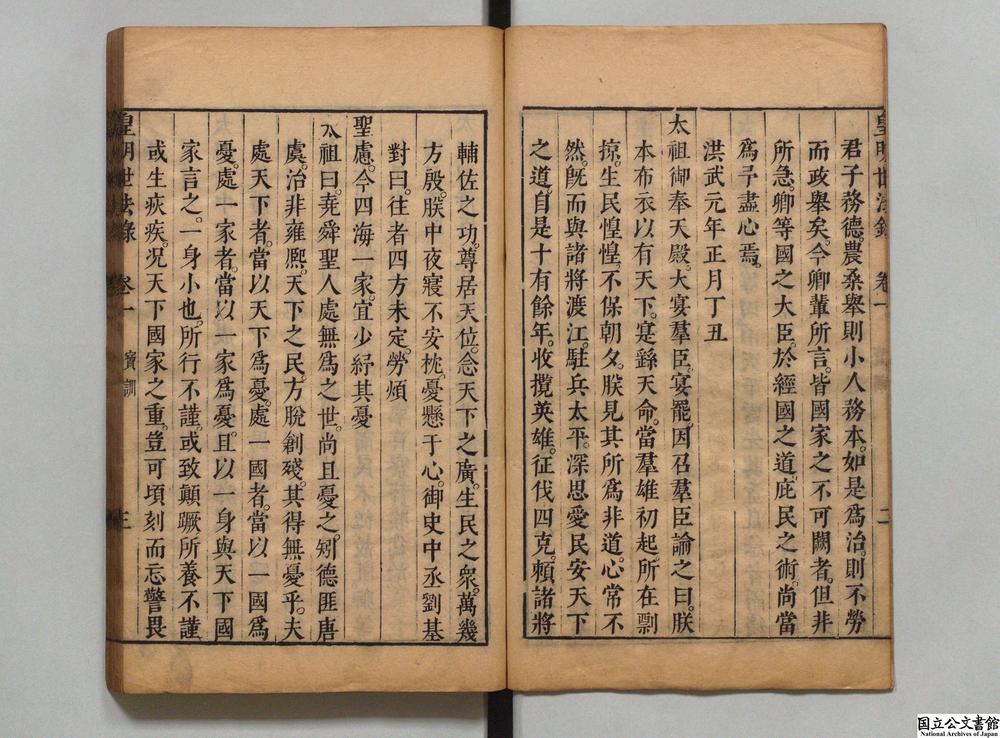 皇明世法錄 卷一 二
君子務德。農桑舉則小人務本。如是爲治。則不勞
而政舉矣。今卿輩所言。皆國家之不可闕者。但非
所急。卿等國之大臣。於經國之道。庇民之術。尚當
爲予盡心焉。
洪武元年正月丁丑
太祖御奉天殿。大宴羣臣。宴罷。因召羣臣諭之曰。朕
本布衣以有天下。寔繇天命。當羣雄初起。所在剽
掠。生民惶惶不保朝夕。朕見其所爲非道。心常不
然。旣而與諸將渡江。駐兵太平。深思愛民安天下
之道。自是十有餘年。收攬英雄。征伐四克。賴諸將
輔佐之功。尊居天位。念天下之廣。生民之衆。萬幾
方殷。朕中夜寢不安枕。憂懸于心。御史中丞劉基
對曰。往者四方未定。勞煩
聖慮。今四海一家。宜少紓其憂
太祖曰。堯舜聖人處無爲之世。尚且憂之。矧德匪唐
虞。治非雍熙。天下之民。方脫創殘。其得無憂乎。夫
處天下者。當以天下爲憂。處一國者。當以一國爲
憂。處一家者。當以一家爲憂。且以一身與天下國
家言之。一身小也。所行不謹。或致顛蹶。所養不謹
或生疾疢。况天下國家之重。豈可頃刻而忘警畏
皇明世法錄 卷一 寶訓 三
国立公文書館
National Archives of Japan